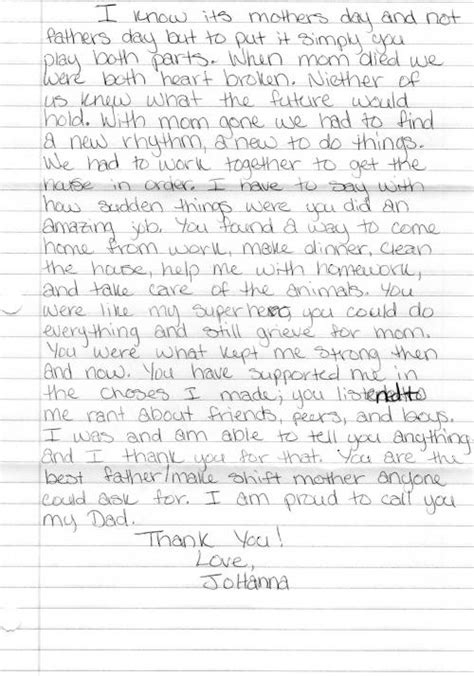 I know its mothers day and not
fathers day but to put it simply you
play both parts. When mom died we
were both heart broken. Niether of
us knew what the future would
hold. With mom gone we had to find
a new rhythm, a new to do things.
We had to work together to get the
house in order. I have to say with
how sudden things were you did an
amazing job. You found a way to come
home from work, make dinner, clean
the house, help me with homework,
and take care of the animals. You
were like my superhero, you could do
everything and still grieve for mom.
You were what kept me strong then
and now. You have supported me in
the choses I made; you listened to
me rant about friends, peers, and boys.
I was and am able to tell you anything
and I thank you for that. You are the
best father/make shift mother anyone
could ask for. I am proud to call you
my Dad.
Thank You!
Love,
JoHanna